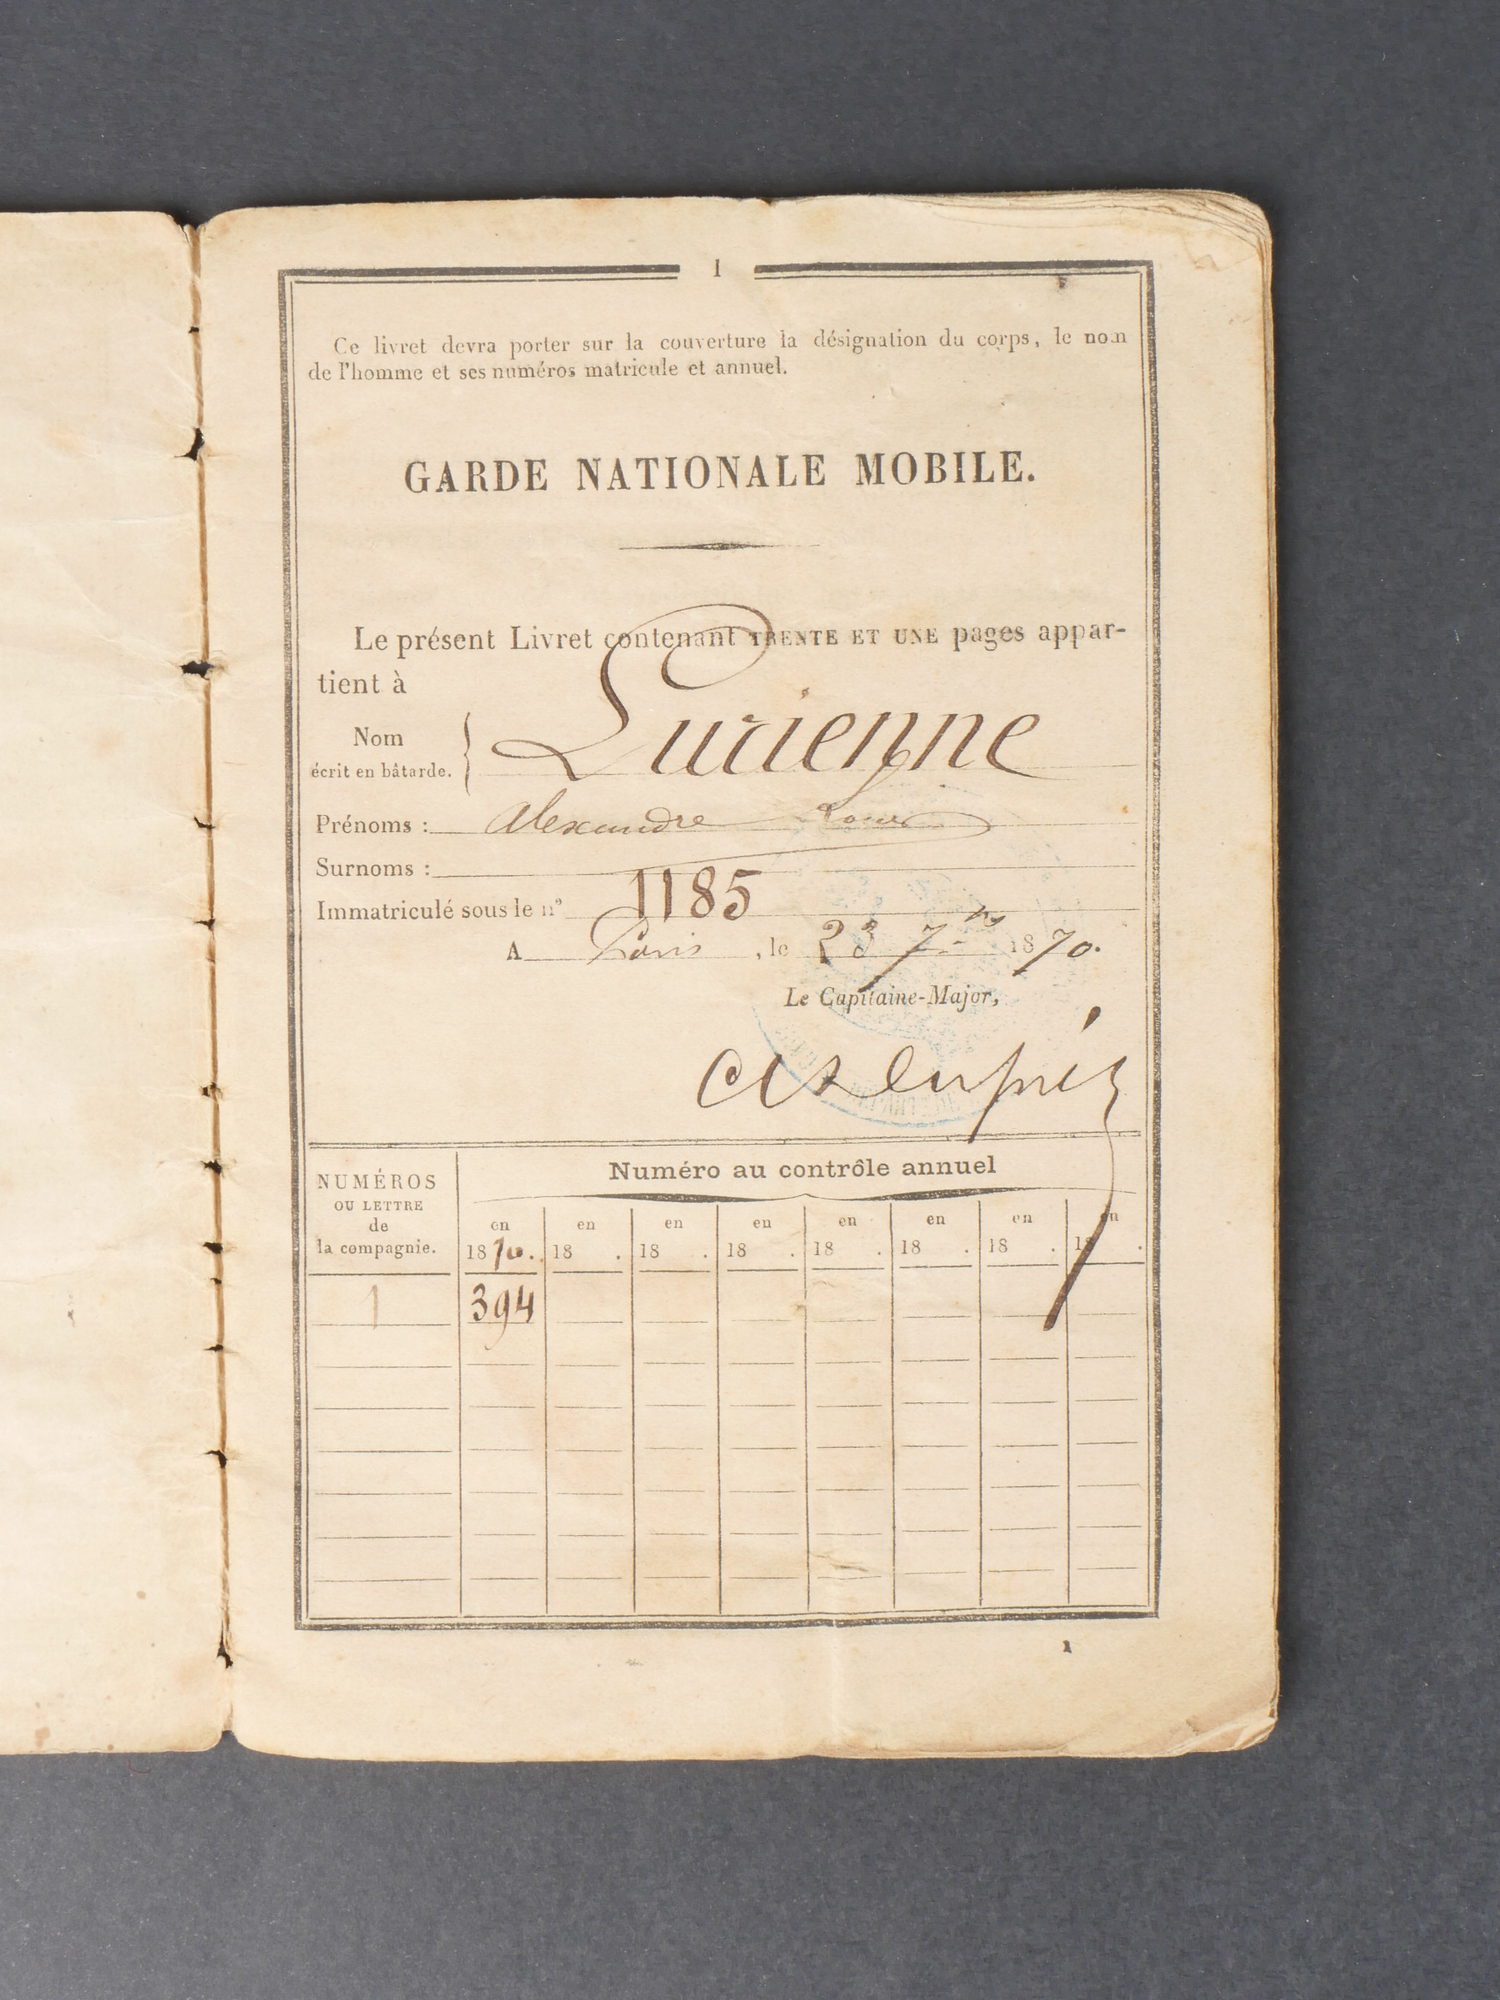 1
Ce livret devra porter sur la couverture la désignation du corps, le nom
de l'homme et ses numéros matricule et annuel.
GARDE NATIONALE MOBILE.
Le présent Livret contenant TRENTE ET UNE pages appar-
tient à
Nom
écrit en bâtarde. } Lurienne
Prénoms : Alexandre Louis
Surnoms :
Immatriculé sous le n° 1185
A Paris, le 23 7bre 1870.
Le Capitaine-Major,
NUMÉROS
OU LETTRE
de
la compagnie.
Numéro au contrôle annuel
en en en en en en en en
1870. 18 . 18 . 18 . 18 . 18 . 18 . 18 .
1 394
1